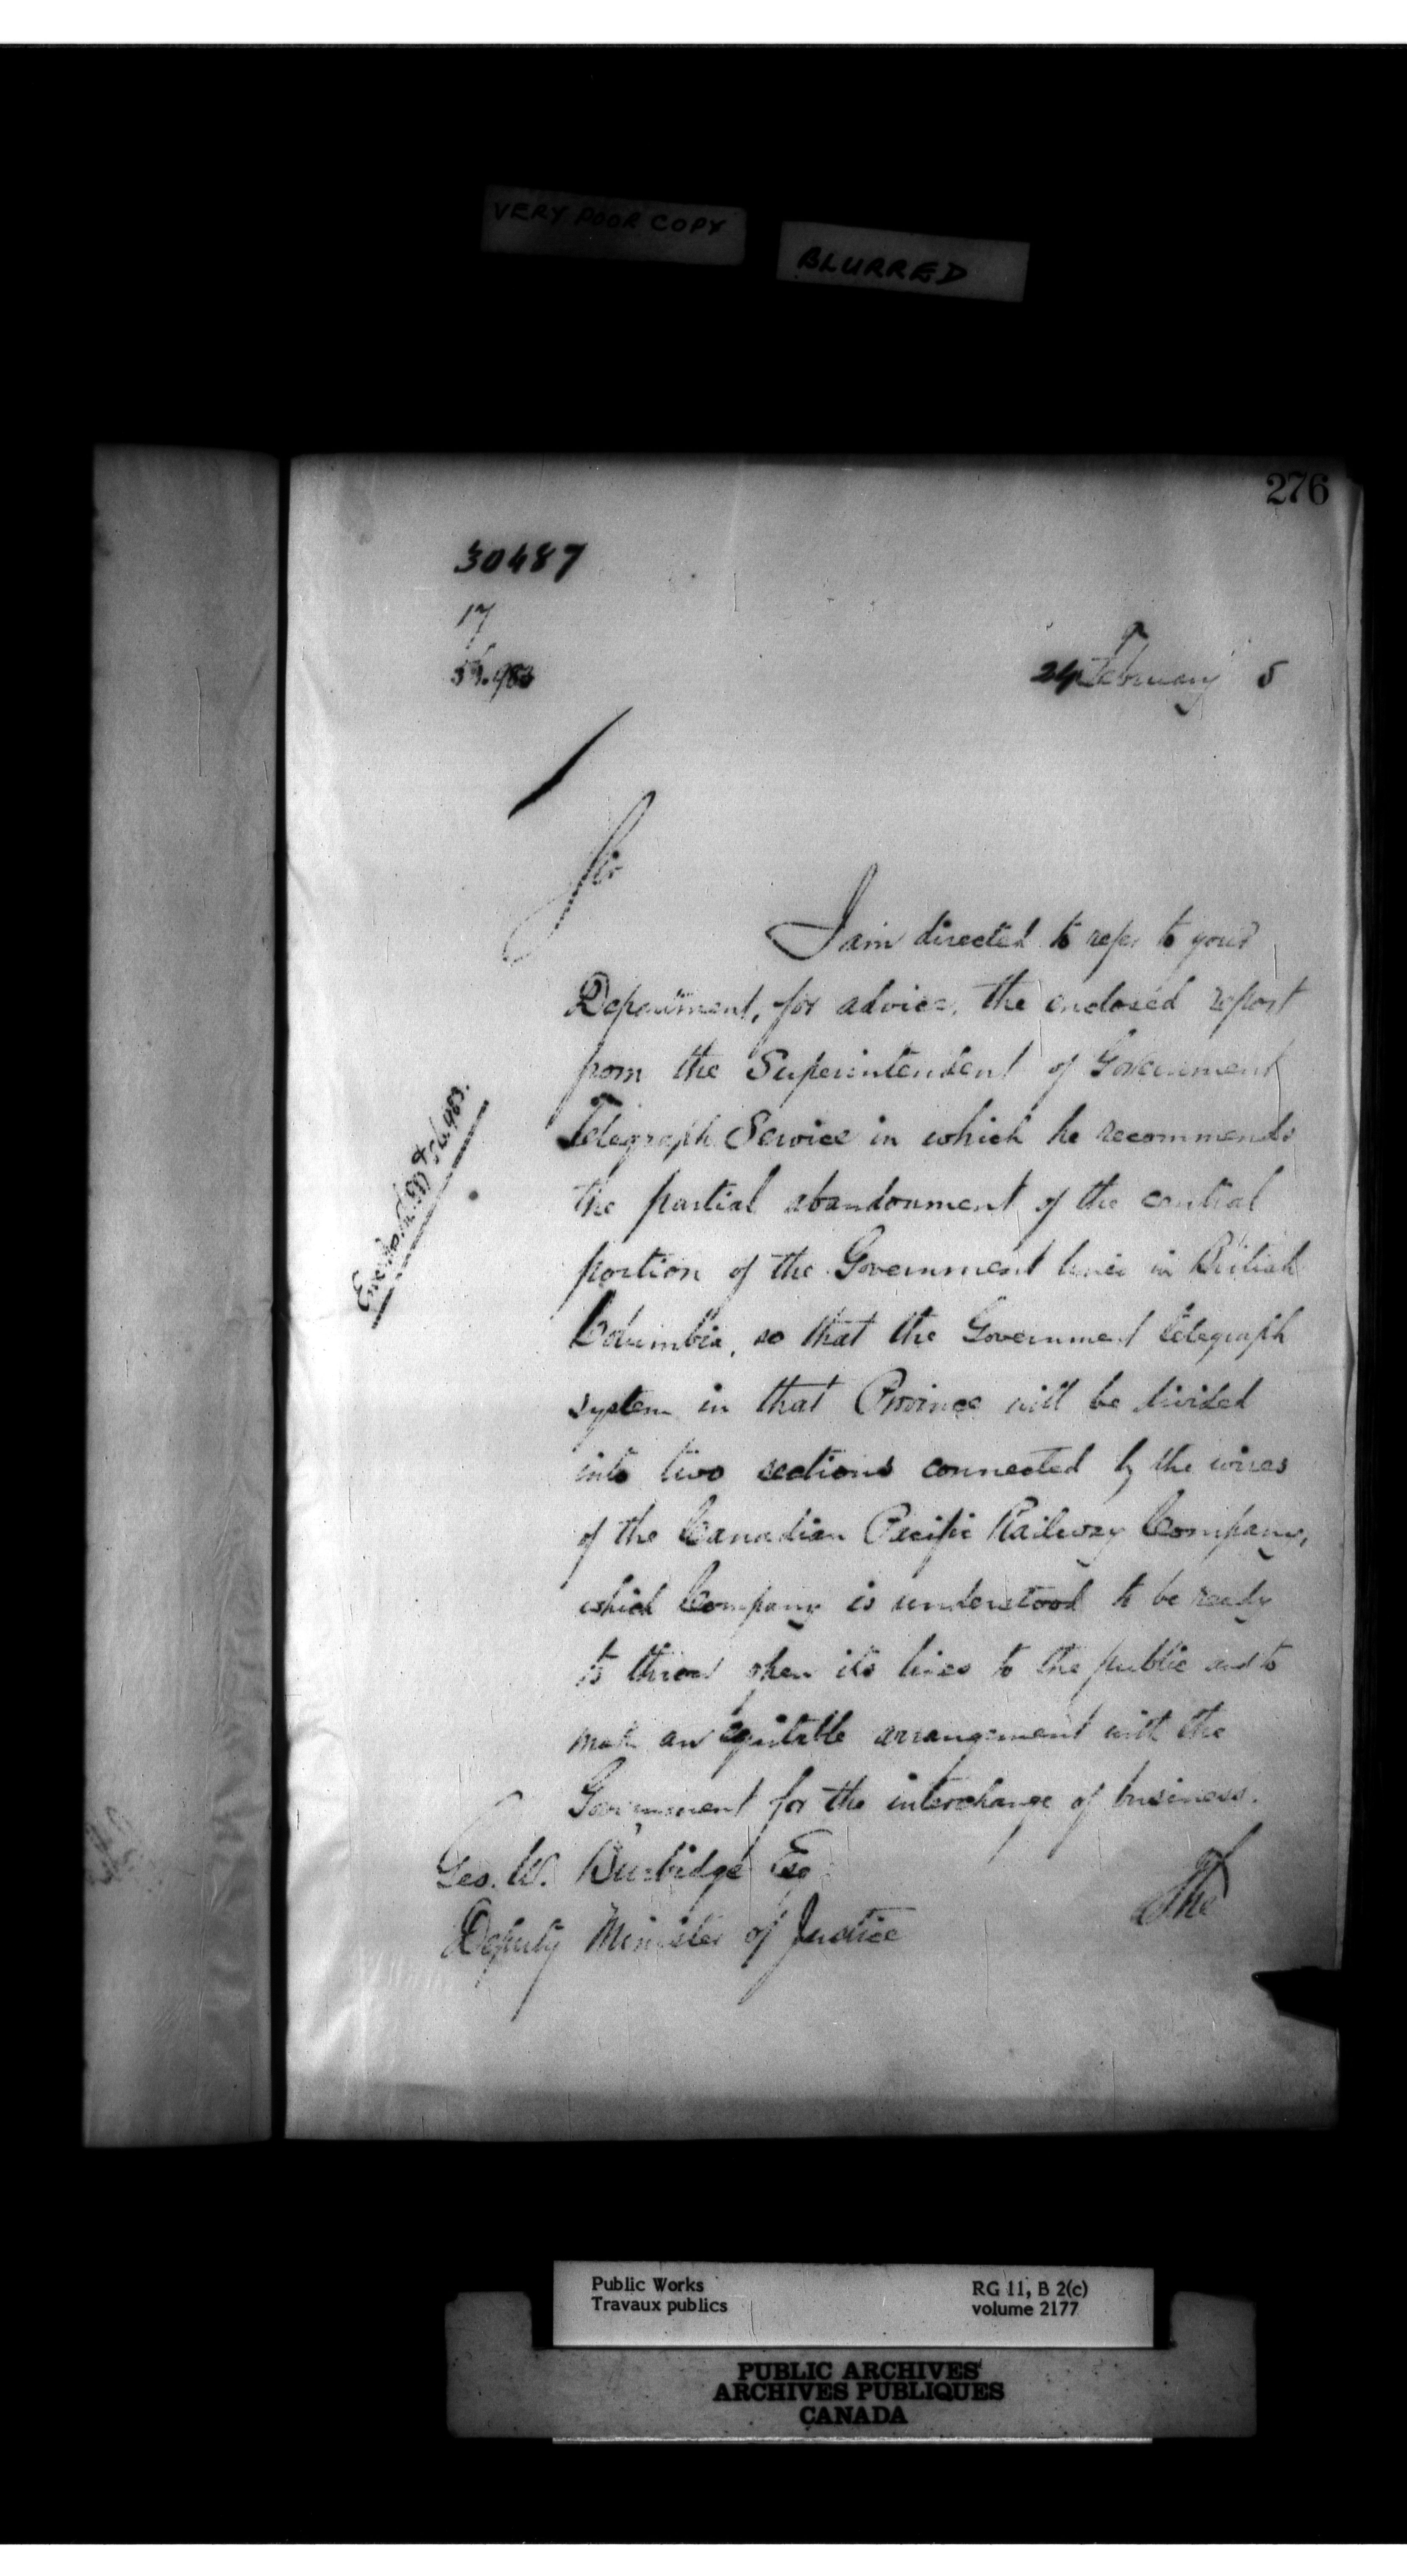 VERY POOR COPY
BLURRED
276
30487
17
24 February 5
Sir
I am directed to refer to your
Department, for advice, the enclosed report
from the Superintendent of Government
Telegraph Service in which he recommends
the partial abandonment of the central
portion of the Government lines in British
Columbia, so that the Government telegraph
system in that Province will be divided
into two sections connected by the wires
of the Canadian Pacific Railway Company,
which Company is understood to be ready
to throw open its lines to the public and to
make an equitable arrangement with the
Government for the interchange of business.
Geo. W. Burbidge Esq
The
Deputy Minister of Justice
Public Works
Travaux publics
RG 11, B 2(c)
volume 2177
PUBLIC ARCHIVES
ARCHIVES PUBLIQUES
CANADA